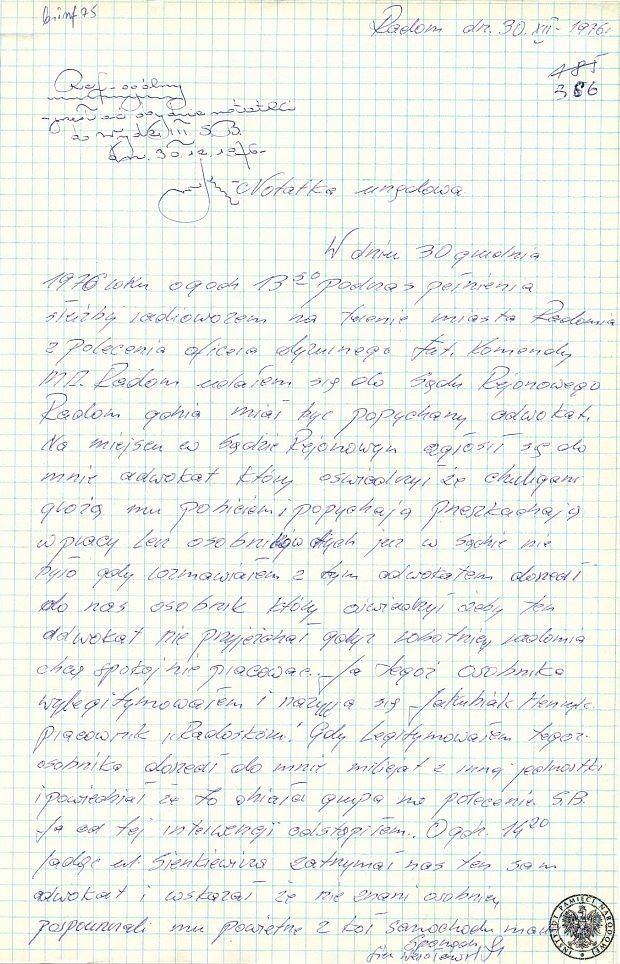 Radom dn. 30.XII-1976r
485
386
Ref. ogólny
do Wydz. III S.B.
30.12.1976r
Notatka urzędowa
W dniu 30 grudnia
1976 roku o godz 13 50 podczas pełnienia
służby radiowozem na terenie miasta Radomia
z polecenia oficera dyżurnego Komendy
M.O. Radom udałem się do Sądu Rejonowego
Radom gdzie miał być popychany adwokat.
Na miejscu w Sądzie Rejonowym zgłosił się do
mnie adwokat który oświadczył że chuligani
grożą mu pobiciem, popychają przeszkadzają
w pracy lecz osobników tych już w sądzie nie
było gdy rozmawiałem z tym adwokatem doszedł
do nas osobnik który oświadczył żeby ten
adwokat nie przyjeżdżał gdyż robotnicy radomia
chcą spokojnie pracować. Ja tegoż osobnika
wylegitymowałem i nazywa się Jakubiak Henryk
pracownik "Radoskóru". Gdy legitymowałem tegoż
osobnika doszedł do mnie milicjant z innej jednostki
i powiedział że to działa grupa na polecenie S.B.
Ja od tej interwencji odstąpiłem. O godz. 14 20
jadąc ul. Sienkiewicza zatrzymał nas ten sam
adwokat i wskazał że nie znani osobnicy
pospuszczali mu powietrze z kół samochodu
INSTYTUT PAMIĘCI NARODOWEJ